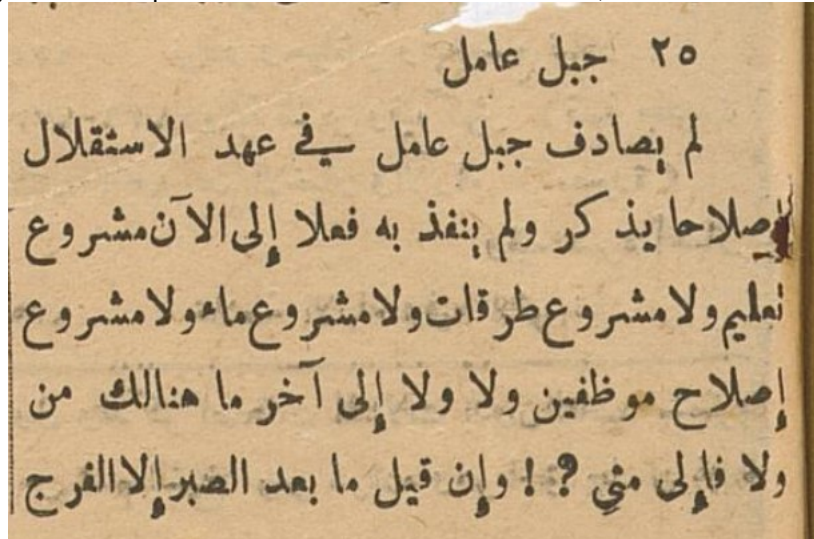 ٢٥ جبل عامل
لم يصادف جبل عامل في عهد الاستقلال
إصلاحا يذكر ولم ينفذ به فعلا إلى الآن مشروع
تعليم ولا مشروع طرقات ولا مشروع ماء ولا مشروع
إصلاح موظفين ولا ولا إلى آخر ما هنالك من
ولا فإلى متى ؟ ! وإن قيل ما بعد الصبر إلا الفرج